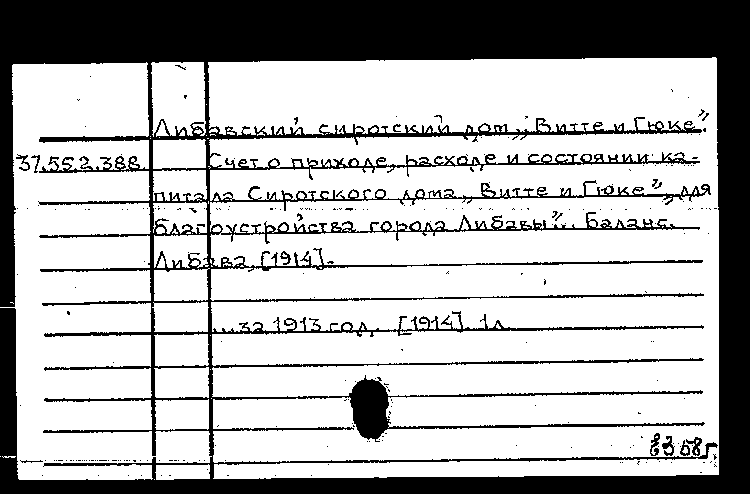 Либавский сиротский дом „Витте и Гюке”.
37.55.2.388. Счет о приходе, расходе и состоянии ка-
питала Сиротского дома „Витте и Гюке”, „для
благоустройства города Либавы”... Баланс.
Либава, [1914].
...за 1913 год. [1914]. 1 л.
58г.